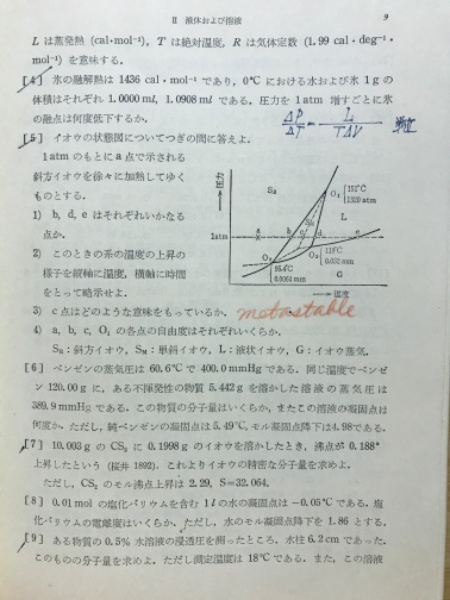 II 液体および溶液 9
L は蒸発熱 (cal·mol⁻¹), T は絶対温度, R は気体定数 (1.99 cal·deg⁻¹·
mol⁻¹) を意味する.
[4] 氷の融解熱は 1436 cal·mol⁻¹ であり, 0°C における水および氷 1g の
体積はそれぞれ 1.0000 ml, 1.0908 ml である. 圧力を 1 atm 増すごとに氷
の融点は何度低下するか.
ΔP/ΔT = L/TΔV
[5] イオウの状態図についてつぎの問に答えよ.
1 atm のもとに a 点で示される
斜方イオウを徐々に加熱してゆく
ものとする.
1) b, d, e はそれぞれいかなる
点か.
2) このときの系の温度の上昇の
様子を縦軸に温度, 横軸に時間
をとって略示せよ.
圧力
S_R
S_M
L
G
O₁
151°C
1320 atm
1atm
a b c d e
O₂
O₃
119°C
95.4°C
温度
3) c 点はどのような意味をもっているか.
metastable
4) a, b, c, O₁ の各点の自由度はそれぞれいくらか.
S_R：斜方イオウ, S_M：単斜イオウ, L：液状イオウ, G：イオウ蒸気.
[6] ベンゼンの蒸気圧は 60.6°C で 400.0 mmHg である. 同じ温度でベンゼ
ン 120.00 g に, ある不揮発性の物質 5.442 g を溶かした溶液の蒸気圧は
389.9 mmHg である. この物質の分子量はいくらか, またこの溶液の凝固点は
何度か. ただし, 純ベンゼンの凝固点は 5.49°C, モル凝固点降下は 4.98 である.
[7] 10.003 g の CS₂ に 0.1998 g のイオウを溶かしたとき, 沸点が 0.188°
上昇したという (桜井 1892). これよりイオウの精密な分子量を求めよ.
ただし, CS₂ のモル沸点上昇は 2.29, S=32.064.
[8] 0.01 mol の塩化バリウムを含む 1 l の水の凝固点は −0.05°C である. 塩
化バリウムの電離度はいくらか. ただし, 水のモル凝固点降下を 1.86 とする.
[9] ある物質の 0.5% 水溶液の浸透圧を測ったところ, 水柱 6.2 cm であった.
このものの分子量を求めよ. ただし測定温度は 18°C である. また, この溶液